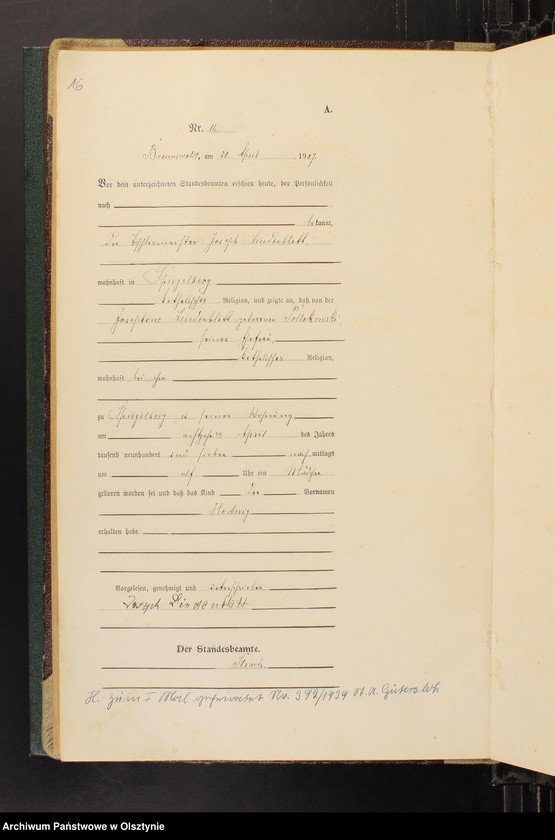 16
A.
Nr. 16
Braunswalde, am 20 April 1907.
Vor dem unterzeichneten Standesbeamten erschien heute, der Persönlichkeit
nach
bekannt,
der Tischlermeister Joseph Lindenblatt
wohnhaft in Spiegelberg
katholischer Religion, und zeigte an, daß von der
Lindenblatt geborenen
seiner Ehefrau,
katholischer Religion,
wohnhaft bei ihm
zu Spiegelberg in seiner Wohnung
am achtzehnten April des Jahres
tausend neunhundert und sieben nachmittags
um elf Uhr ein Mädchen
geboren worden sei und daß das Kind den Vornamen
Hedwig
erhalten habe.
Vorgelesen, genehmigt und unterschrieben
Joseph Lindenblatt
Der Standesbeamte.
H. zum I Mal geheiratet Nr. 392/1939 St. A. Gütersloh
Archiwum Państwowe w Olsztynie